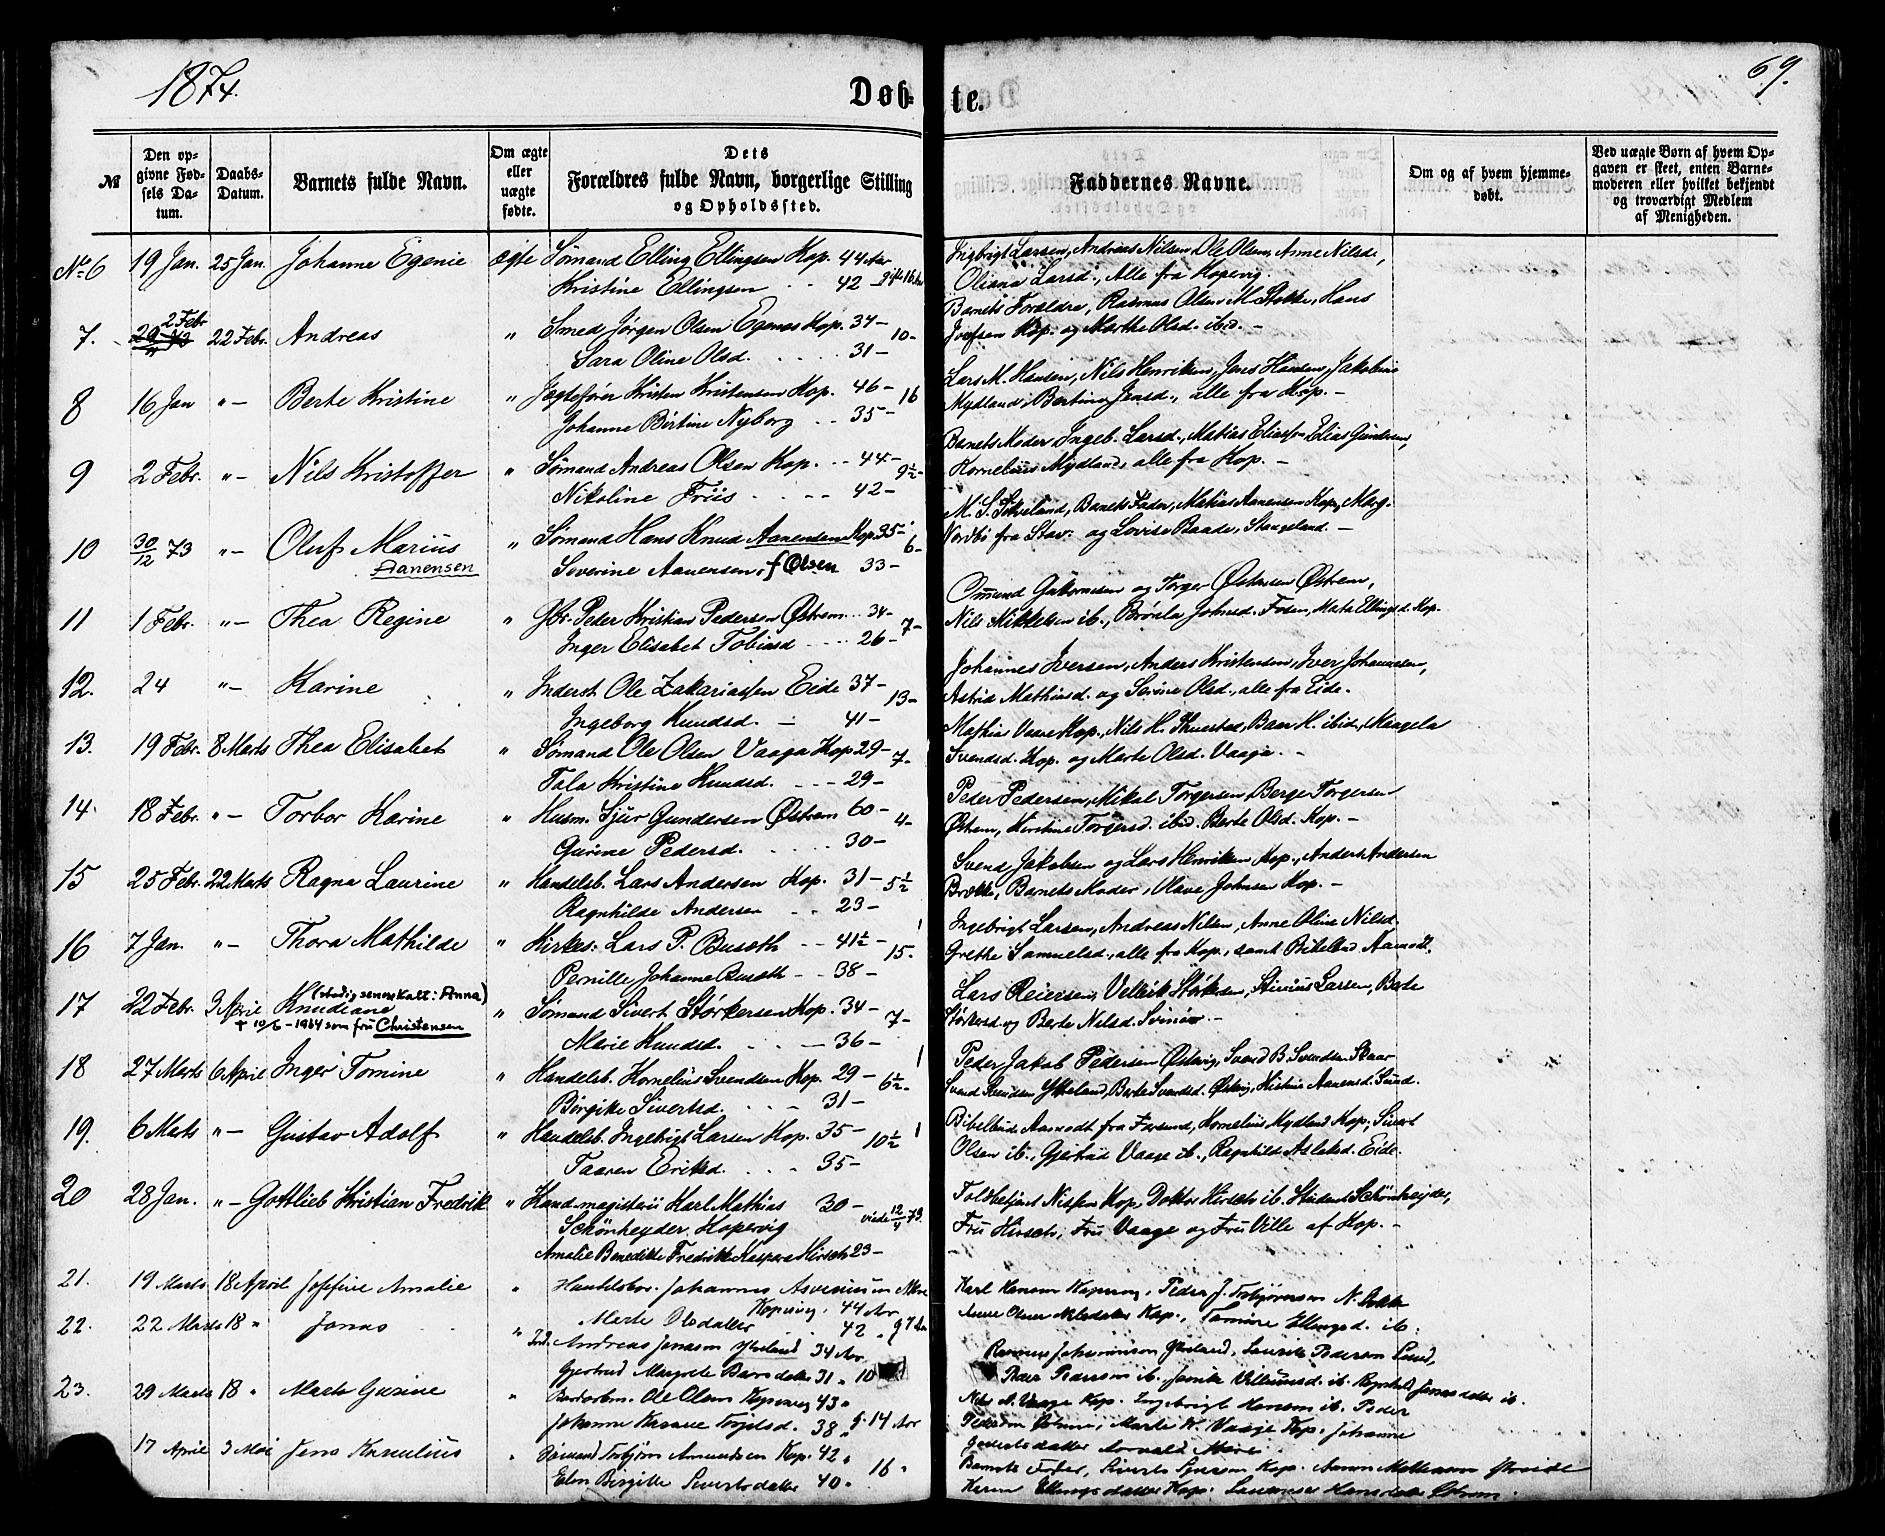 1874.
Døb-
te.
69.
№
Den op-
givne Fød-
sels Da-
tum.
Daabs-
Datum.
Barnets fulde Navn.
Om ægte
eller
uægte
fødte.
Dets
Forældres fulde Navn, borgerlige Stilling
og Opholdssted.
Faddernes Navne.
Om og af hvem hjemme-
døbt.
Ved uægte Børn af hvem Op-
gaven er skeet, enten Barne-
moderen eller hvilket bekjendt
og troværdigt Medlem
af Menigheden.
No 6 19 Jan. 25 Jan. Johanne Egenie ægte Sømand Elling Ellingsen Kop. 44 Aar
Kristine Ellingsen 42 -
Ingbrigt Larsen, Andreas Nilsen, Ole Olsen, Anne Nilsd.,
Oliana Larsd., Alle fra Kopervig.
7. 2 Febr 22 Febr. Andreas " Smed Jørgen Olsen Egenes Kop. 37 - 10 -
Sara Oline Olsd. 31 -
Barnets Forældre, Rasmus Olsen M. Stokke, Hans
Kop. og Marthe Olsd. ibid. -
8 16 Jan " - Berte Kristine " Jagtefører Kristen Kristensen Kop. 46 - 16
Johanne Bertine Nyborg 35 -
Lars M. Hansen, Nils Henriksen, Jens Hansen, Jakobine
Mydland, Bertine Jensd., alle fra Kop. -
9 2 Febr. " - Nils Kristoffer " Sømand Andreas Olsen Kop. 44 - 9½ -
Nikoline Friis 42 -
Barnets Moder, Ingeb. Larsd., Matias Eliassen, Elias Gundersen,
Kornelius Mydland, alle fra Kop. -
10 30/12 73 " - Oluf Marius " Sømand Hans Knud Aanensen Kop. 35 - 6 -
Aanensen
Severine Aanensen, f Olsen 33 -
M. S. Barnets Fader, Matias Aanensen Kop., Marg.
Nordbø fra Stav. og Lovise Baade, Stangeland. -
11 1 Febr. " - Thea Regine " Gbr. Peder Kristian Pedersen Østrem 34 - 7 -
Inger Elisabet Tobiasd 26 -
Omund og Torger Østensen Østrem,
Nils Mikkelsen ib., Brønla Johnsd. Fosen, Mata Ellingsd. Kop.
12. 24 " - Karine " Inderst. Ole Zakariassen Eide 37 - 13 -
Ingeborg Knudsd. 41 -
Johannes Iversen, Anders Kristensen, Iver Johannesen,
Astrid Mathiasd. og Serine Olsd., alle fra Eide.
13. 19 Febr. 8 Marts Thea Elisabet " Sømand Ole Olsen Vaaga Kop. 29 - 7 -
Tala Kristine Knudsd. 29 -
Svendsd. Kop. og Marte Olsd. Vaage. -
14. 18 Febr. " - Torbor Karine " Husm. Sjur Gundersen Østrem 60 - 4 -
Gurine Pedersd. 30 -
Peder Pedersen, Mikal Torgersen, Berge Torgersen
Østrem, Kirstine Torgersd. ibid. Berte Olsd. Kop. -
15 25 Febr. 22 Marts Ragna Laurine " Handelsb. Lars Andersen Kop. 31 - 5½
Ragnhilde Andersen 23 -
Svend Jakobsen og Lars Henriksen Kop., Anders Andersen
Brække, Barnets Moder, Olave Johnsen Kop. -
16 7 Jan. " - Thora Mathilde " Kirkes. Lars P. Buseth 41½ - 15.
Pernille Johanne Buseth 38 -
Ingebrigt Larsen, Andreas Nilsen, Anne Oline Nilsd.
Grethe Samuelsd., alle fra Kop., samt Bibelbud Aamodt.
17 22 Febr. 3 April Knudiane " Sømand Sivert Størkersen Kop. 34 - 7 -
(stadig senere kalt: Anna)
† 10/6 - 1964 som fru Christensen
Marie Knudsd. 36 -
Lars Reiersen, Velleik Størkersen, Larsen, Berte
Størkersd og Berte Nilsd. -
18 27 Marts 6 April Inger Tomine " Handelsb. Kornelius Svendsen Kop. 29 - 6½ -
Børgitte Sivertsd. 31 -
Peder Jakob Pedersen Østevig, Svend B. Svendsen Skaar
Svend Knudsen Ytreland, Berte Svendsd. Østevig, Kistine Aanensd. Sund.
19. 6 Marts " - Gustav Adolf " Handelsb. Ingebrigt Larsen Kop. 35 - 10½
Taaren Eriksd. 35 -
Bibelbud Aamodt fra Farsund, Kornelius Mydland Kop., Sivert
Olsen ib., Gjertrud Vaage ib., Ragnhilde Aslaksd. Eide.
20 28 Jan. " - Gottlieb Kristian Fredrik " Hand. magisterii Karl Mathias 30 - viede 12/4 73.
Schönheyder, Kopervig
Amalie Benedikte Fredrikke Kaspara Hirsch 23 -
Toldbetjent Nilsen Kop., Doktor Hirsch ib. Student Schönheyder,
Fru Hirsch, Fru Vaage og Fru Ville af Kop. -
21. 19 Marts 18 April Josefine Amalie " Handelsbor. Johannes
Kopervig. 44 Aar
Marte Olsdatter 42 "
Karl Hansen Kopervig, Peder J. Torbjørnsen N.
Anne Oline Nilsdatter Kop., Tomine Ellingsd. ib.
22. 22 Marts 18 " Jonas " Ind. Andreas Jonassen Ytreland 34 Aar
Gjertrud Margrete Baardsdatter 31 " 10
Rasmus Johannessen Ytreland, Laurits Pedersen Sund,
Peder Pedersen ib. ib. Ragnhild Jonasdatter ib.
23. 29 Marts 18 " Marta Gurine " Ole Olsen Kopervig 43 "
Johanne 38 " 14 Aar
Nils N. Vaage Kop. Ingebrigt Hansen ib. Peder
Pedersen Marta N. Vaage Kop. Johanne
17 April 3 Mai Jens Kornelius " Sømand Torbjørn Amundsen Kop. 42 " 16 "
Elen Birgitte Sivertsdatter 40 "
Barnets Fader, Siverts Kop.
Karen Ellingsdatter Kop. Hansdatter